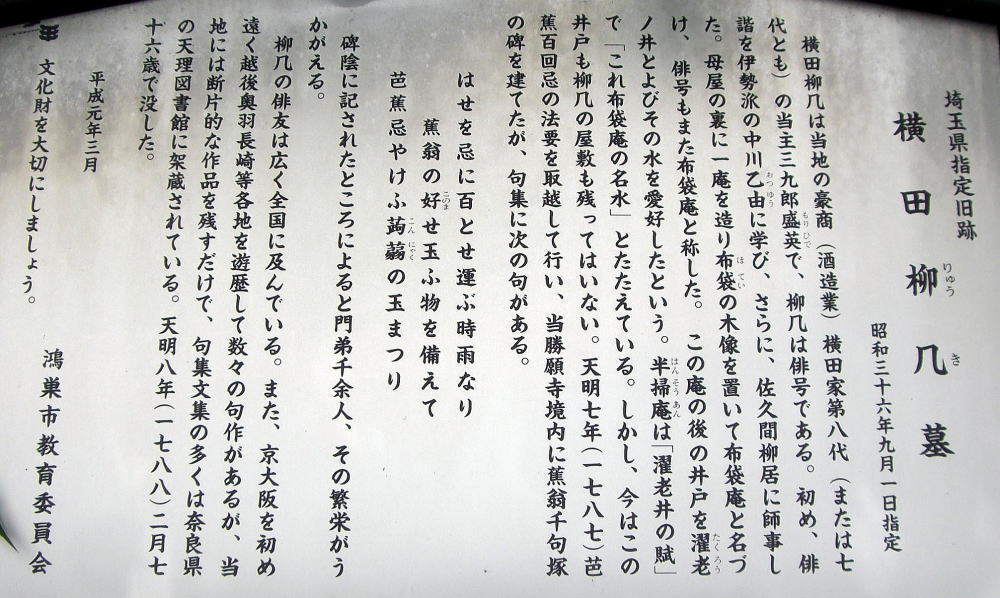 埼玉県指定旧跡
横田柳几墓
りゅう き
昭和三十六年九月一日指定
横田柳几は当地の豪商（酒造業）横田家第八代（または七
代とも）の当主三九郎盛英で、柳几は俳号である。初め、俳
もり ひで
諧を伊勢派の中川乙由に学び、さらに、佐久間柳居に師事し
おつゆう
た。母屋の裏に一庵を造り布袋の木像を置いて布袋庵と名づ
ほ てい
け、俳号もまた布袋庵と称した。この庵の後の井戸を濯老
たくろう
ノ井とよびその水を愛好したという。半掃庵は「濯老井の賦」
はん そう あん
で「これ布袋庵の名水」とたたえている。しかし、今はこの
井戸も柳几の屋敷も残ってはいない。天明七年（一七八七）芭
蕉百回忌の法要を取越して行い、当勝願寺境内に蕉翁千句塚
の碑を建てたが、句集に次の句がある。
はせを忌に百とせ運ぶ時雨なり
蕉翁の好せ玉ふ物を備えて
このま
芭蕉忌やけふ蒟蒻の玉まつり
こん にゃく
碑陰に記されたところによると門弟千余人、その繁栄がう
かがえる。
柳几の俳友は広く全国に及んでいる。また、京大阪を初め
遠く越後奥羽長崎等各地を遊歴して数々の句作があるが、当
地には断片的な作品を残すだけで、句集文集の多くは奈良県
の天理図書館に架蔵されている。天明八年（一七八八）二月七
十六歳で没した。
平成元年三月
文化財を大切にしましょう。
鴻巣市教育委員会